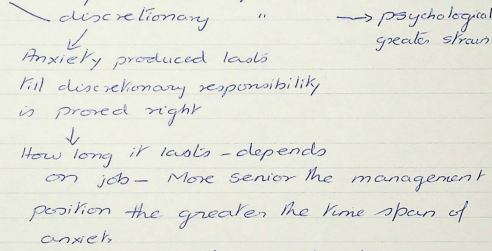 discretionary " → psychological
greater strain
Anxiety produced lasts
till discretionary responsibility
is proved right
How long it lasts - depends
on job - More senior the management
position the greater the time span of
anxiety